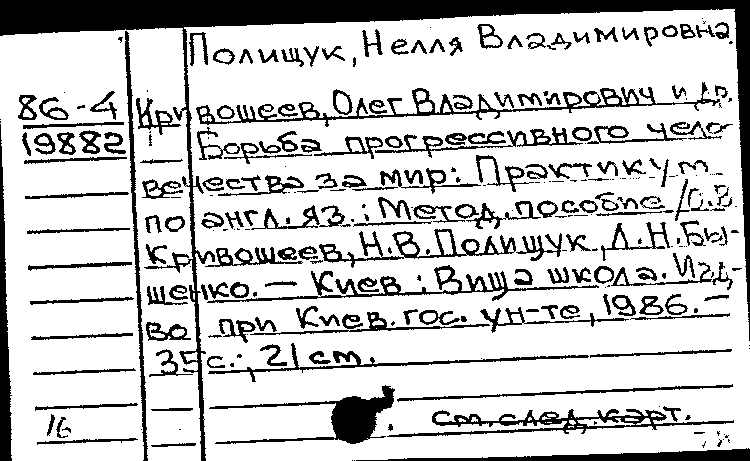 Полищук, Нелля Владимировна
86-4 Кривошеев, Олег Владимирович и др.
19882 Борьба прогрессивного чело
вечества за мир: Практикум
по англ. яз.: Метод. пособие / О.В
Кривошеев, Н.В. Полищук, Л.Н. Бы-
шенко. — Киев: Вища школа. Изд-
во при Киев. гос. ун-те, 1986. —
35 с.; 21 см.
16 см. след. карт.